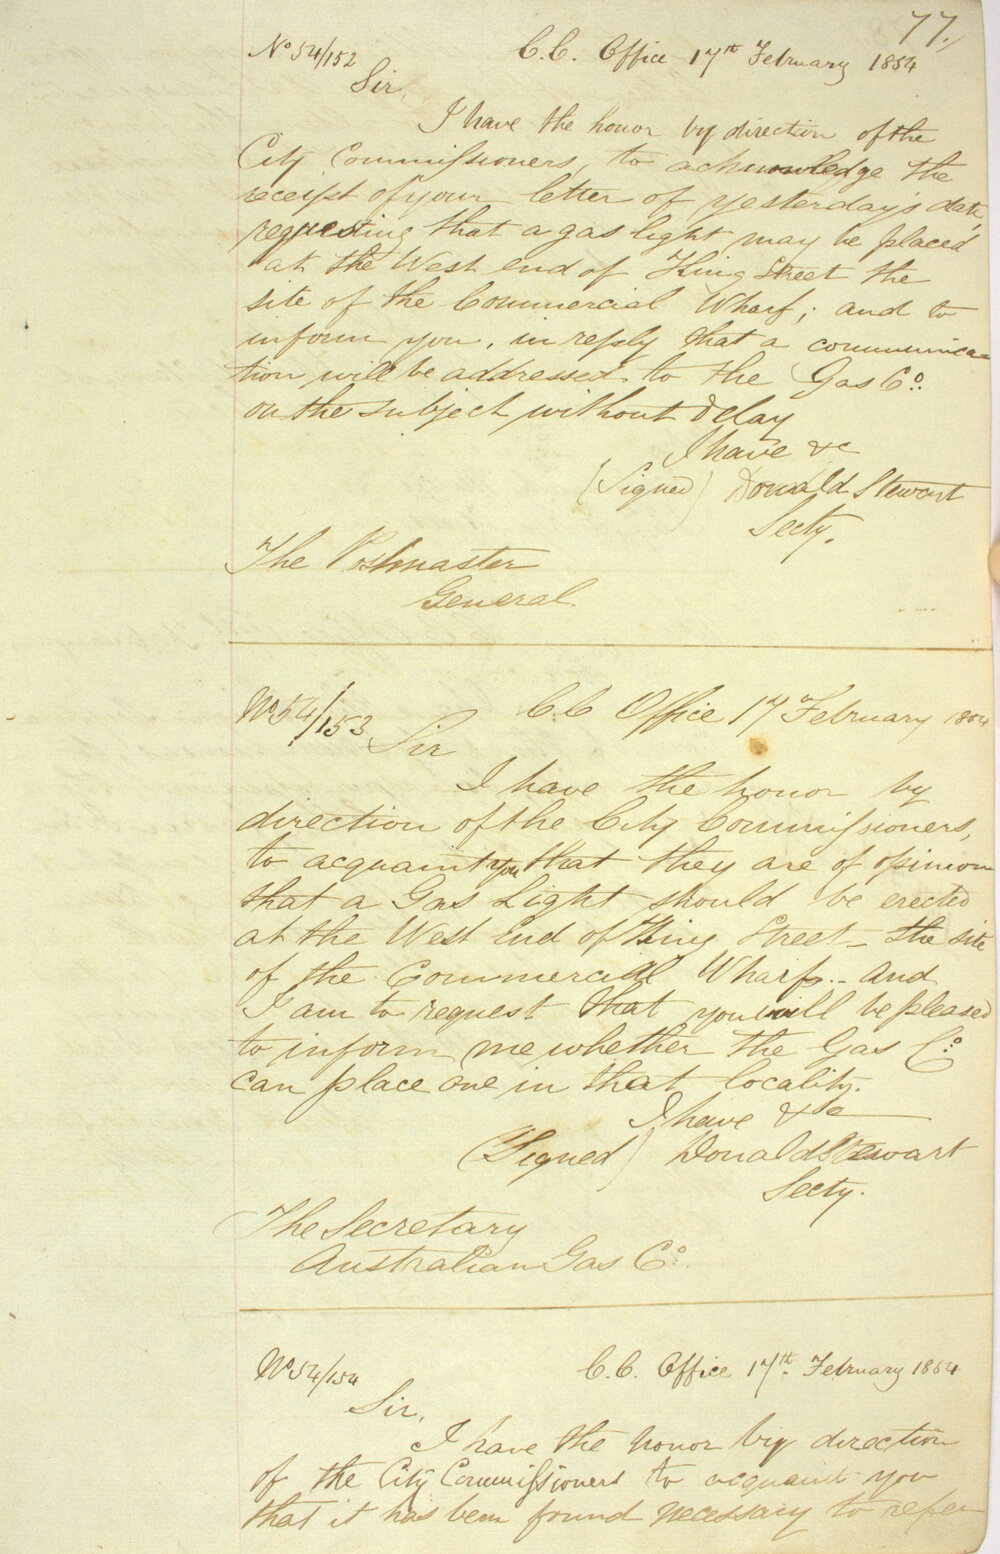 77.
No 54/152 C.C. Office 17th February 1854
Sir,
I have the honor by direction of the
City Commissioners, to acknowledge the
receipt of your letter of yesterday's date,
requesting that a gas light may be placed
at the West end of King Street the
site of the Commercial Wharf; and to
inform you, in reply that a communica-
tion will be addressed to the Gas Co.
on the subject without delay
I have &c
(Signed) Donald Stewart
Secty.
The Postmaster
General.
No 54/153 C.C Office 17 February 1854
Sir
I have the honor by
direction of the City Commissioners,
to acquaint you that they are of opinion
that a Gas Light should be erected
at the West End of King Street - the site
of the Commercial Wharf - and
I am to request that you will be pleased
to inform me whether the Gas Co.
can place one in that locality.
I have &c
(Signed) Donald Stewart
Secty.
The Secretary
Australian Gas Co.
No 54/154 C.C. Office 17th. February 1854
Sir,
I have the honor by direction
of the City Commissioners to acquaint you
that it has been found necessary to refer